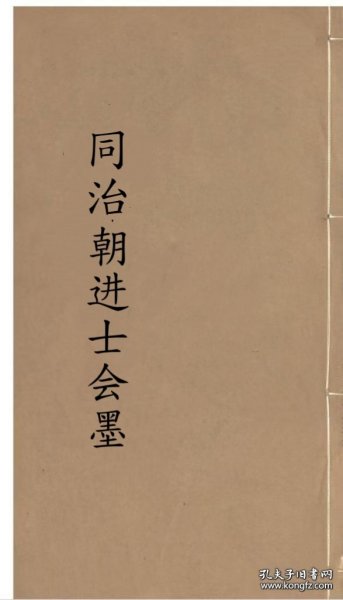 同治朝进士会墨
孔夫子旧书网
www.kongfz.com